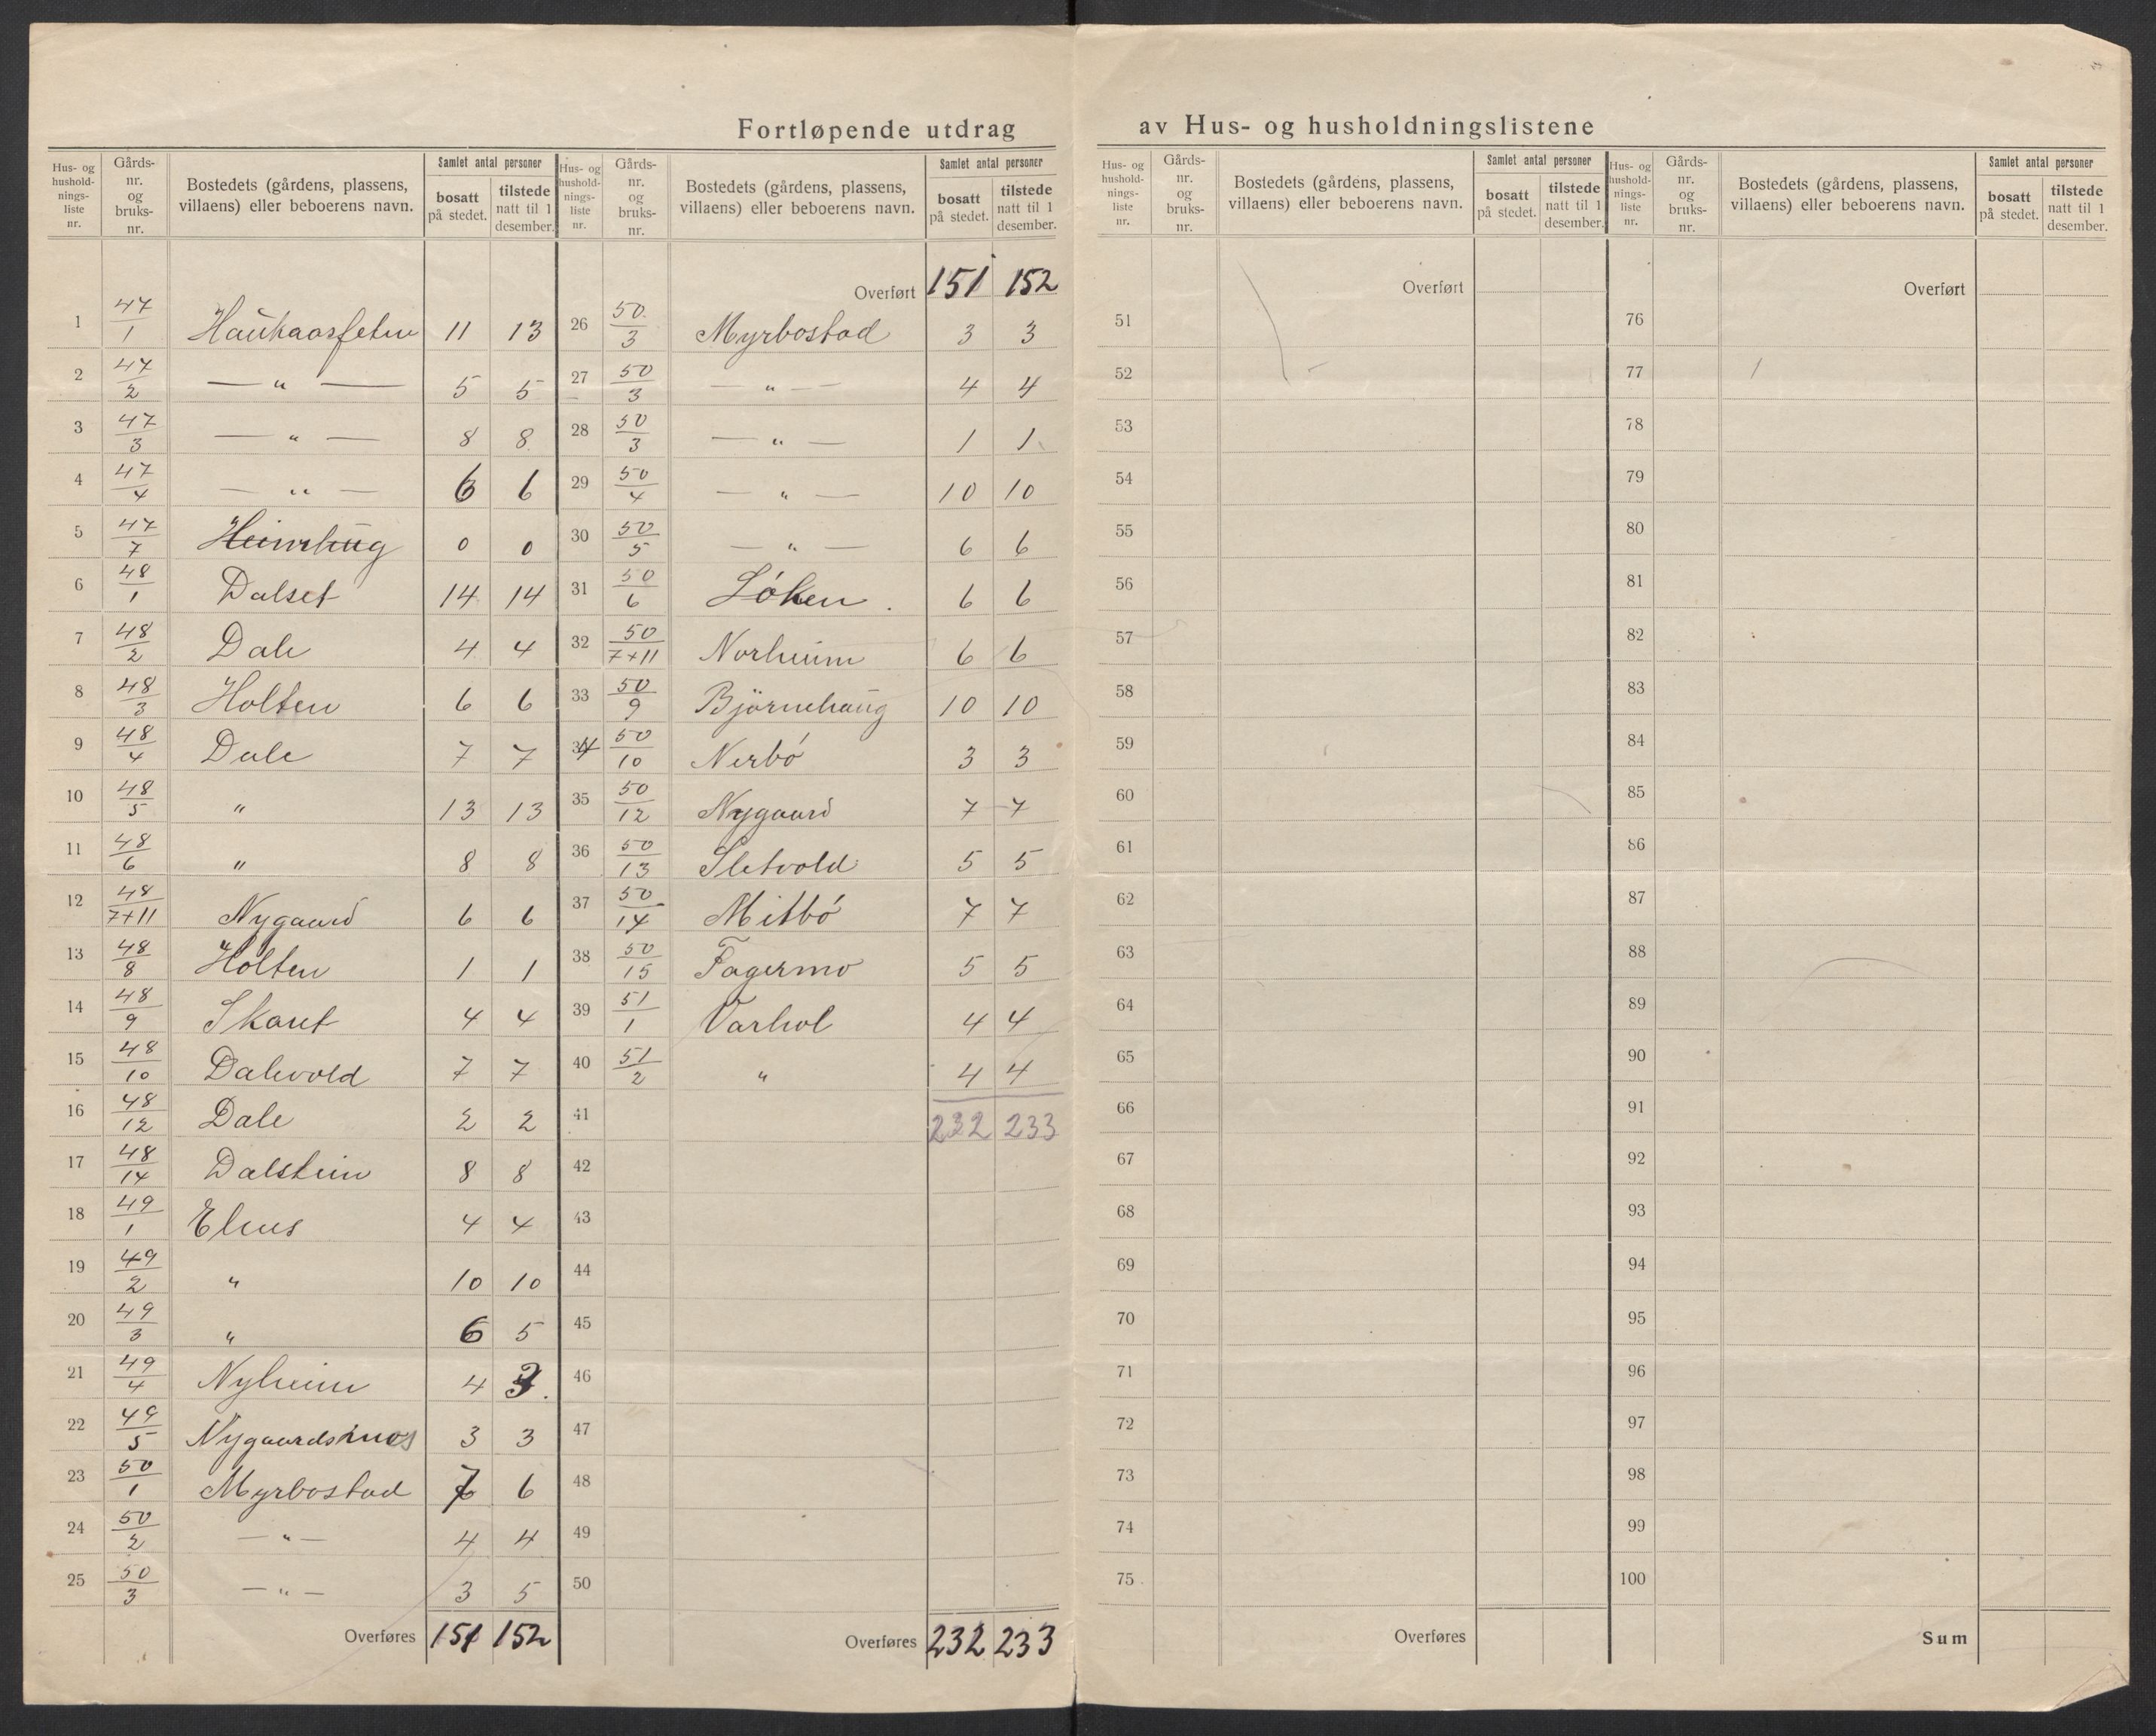 Fortløpende utdrag av Hus- og husholdningslistene
Hus- og husholdnings-liste nr. | Gårds-nr. og bruks-nr. | Bostedets (gårdens, plassens, villaens) eller beboerens navn. | Samlet antal personer bosatt på stedet. | tilstede natt til 1 desember.
1 47/1 Haukaasfeten 11 13
2 47/2 — " — 5 5
3 47/3 — " — 8 8
4 47/4 — " — 6 6
5 47/7 Heimhaug 0 0
6 48/1 Dalset 14 14
7 48/2 Dale 4 4
8 48/3 Holten 6 6
9 48/4 Dale 7 7
10 48/5 " 13 13
11 48/6 " 8 8
12 48/7+11 Nygaard 6 6
13 48/8 Holten 1 1
14 48/9 Skaret 4 4
15 48/10 Dalevold 7 7
16 48/12 Dale 2 2
17 48/14 Dalsteim 8 8
18 49/1 Elnes 4 4
19 49/2 " 10 10
20 49/3 " 6 5
21 49/4 Nyheim 4 3.
22 49/5 Nygaardsmos 3 3
23 50/1 Myrbostad 7 6
24 50/2 — " — 4 4
25 50/3 — " — 3 5
Overføres 151 152
Hus- og husholdnings-liste nr. | Gårds-nr. og bruks-nr. | Bostedets (gårdens, plassens, villaens) eller beboerens navn. | Samlet antal personer bosatt på stedet. | tilstede natt til 1 desember.
Overført 151 152
26 50/3 Myrbostad 3 3
27 50/3 — " — 4 4
28 50/3 — " — 1 1
29 50/4 — " — 10 10
30 50/5 — " — 6 6
31 50/6 Løken . 6 6
32 50/7+11 Norheim 6 6
33 50/9 Björnehaug 10 10
34 50/10 Nerbó 3 3
35 50/12 Nygaard 7 7
36 50/13 Sletvold 5 5
37 50/14 Mitbó 7 7
38 50/15 Fagermo 5 5
39 51/1 Varhol 4 4
40 51/2 " 4 4
41 232 233
42
43
44
45
46
47
48
49
50
Overføres 232 233
Hus- og husholdnings-liste nr. | Gårds-nr. og bruks-nr. | Bostedets (gårdens, plassens, villaens) eller beboerens navn. | Samlet antal personer bosatt på stedet. | tilstede natt til 1 desember.
Overført
51
52
53
54
55
56
57
58
59
60
61
62
63
64
65
66
67
68
69
70
71
72
73
74
75
Overføres
Hus- og husholdnings-liste nr. | Gårds-nr. og bruks-nr. | Bostedets (gårdens, plassens, villaens) eller beboerens navn. | Samlet antal personer bosatt på stedet. | tilstede natt til 1 desember.
Overført
76
77
78
79
80
81
82
83
84
85
86
87
88
89
90
91
92
93
94
95
96
97
98
99
100
Sum